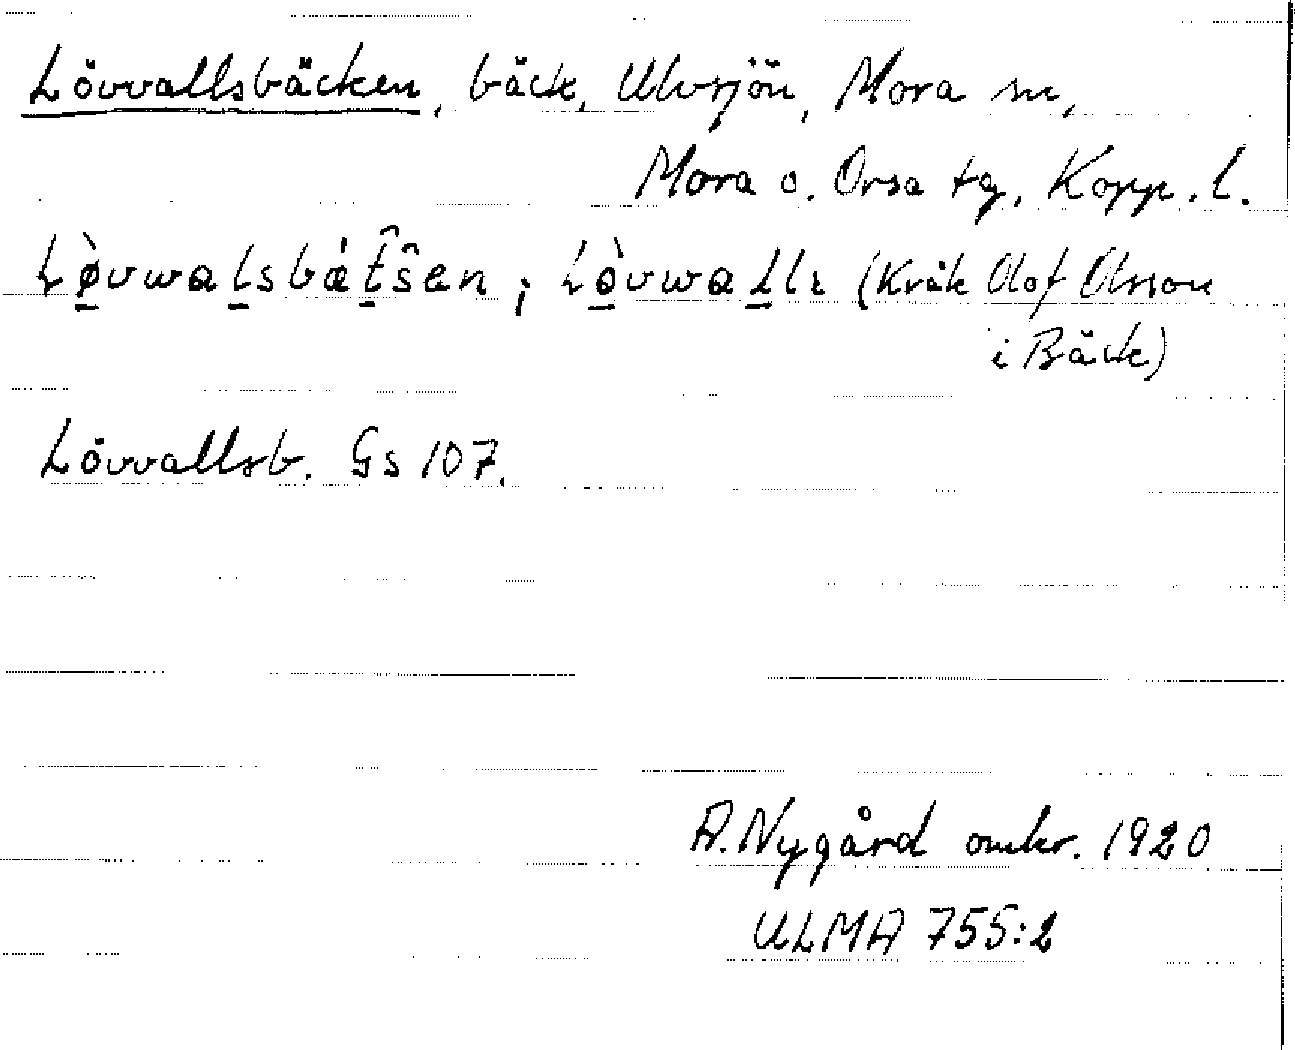 Lövvallsbäcken, bäck, Ulvsjön, Mora sn,
Mora o. Orsa tg, Kopp. l.
Lø̲̀vwal̲sbǽt̲̂ŝen; Lø̲̀vwal̲lr (Kråk Olof Olsson
i Bäck)
Lövvallsb. Gs 107.
A. Nygård omkr. 1920
ULMA 755:2